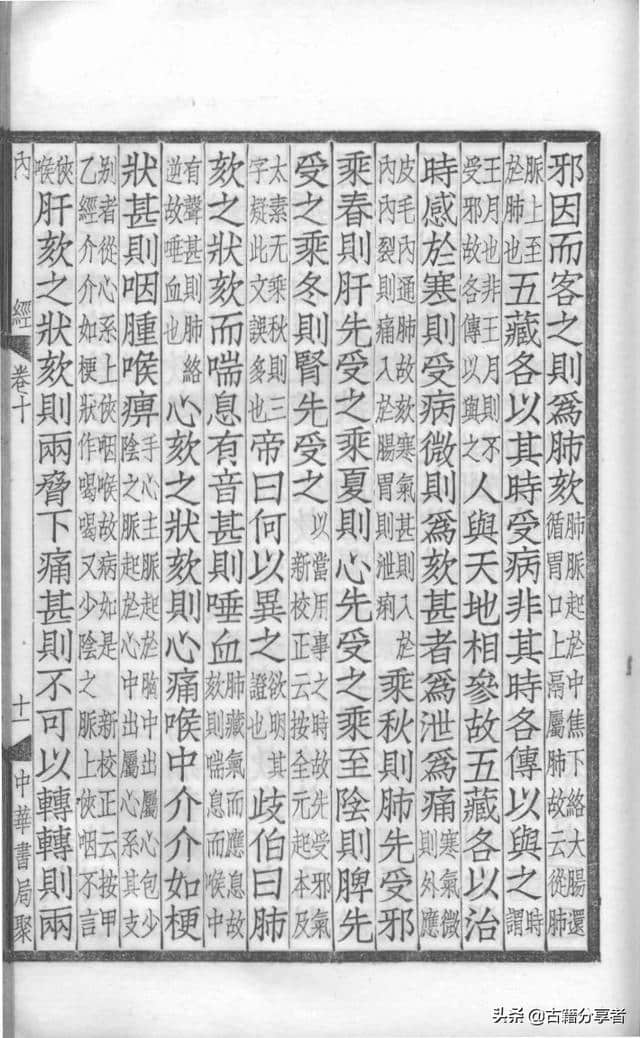 邪因而客之則爲肺欬肺脈起於中焦下絡大腸還循胃口上鬲屬肺故云從肺
脈上至於肺也五藏各以其時受病非其時各傳以與之時謂
王月也非王月則不受邪故各傳以與之人與天地相參故五藏各以治
時感於寒則受病微則爲欬甚者爲泄爲痛寒氣微則外應
皮毛內通肺故欬寒氣甚則入於內內裂則痛入於腸胃則泄痢乘秋則肺先受邪
乘春則肝先受之乘夏則心先受之乘至陰則脾先
受之乘冬則腎先受之以當用事之時故先受邪氣新校正云按全元起本及
太素无乘秋則三字疑此文誤多也帝曰何以異之欲明其證也歧伯曰肺
欬之狀欬而喘息有音甚則唾血肺藏氣而應息故欬則喘息而喉中
有聲甚則肺絡逆故唾血也心欬之狀欬則心痛喉中介介如梗
狀甚則咽腫喉痹手心主脈起於胸中出屬心包少陰之脈起於心中出屬心系其支
別者從心系上俠咽喉故病如是 新校正云按甲乙經介介如梗狀作喝喝又少陰之脈上俠咽不言
俠喉肝欬之狀欬則兩脅下痛甚則不可以轉轉則兩
內經 卷十 十一 中華書局聚
头条 @古籍分享者